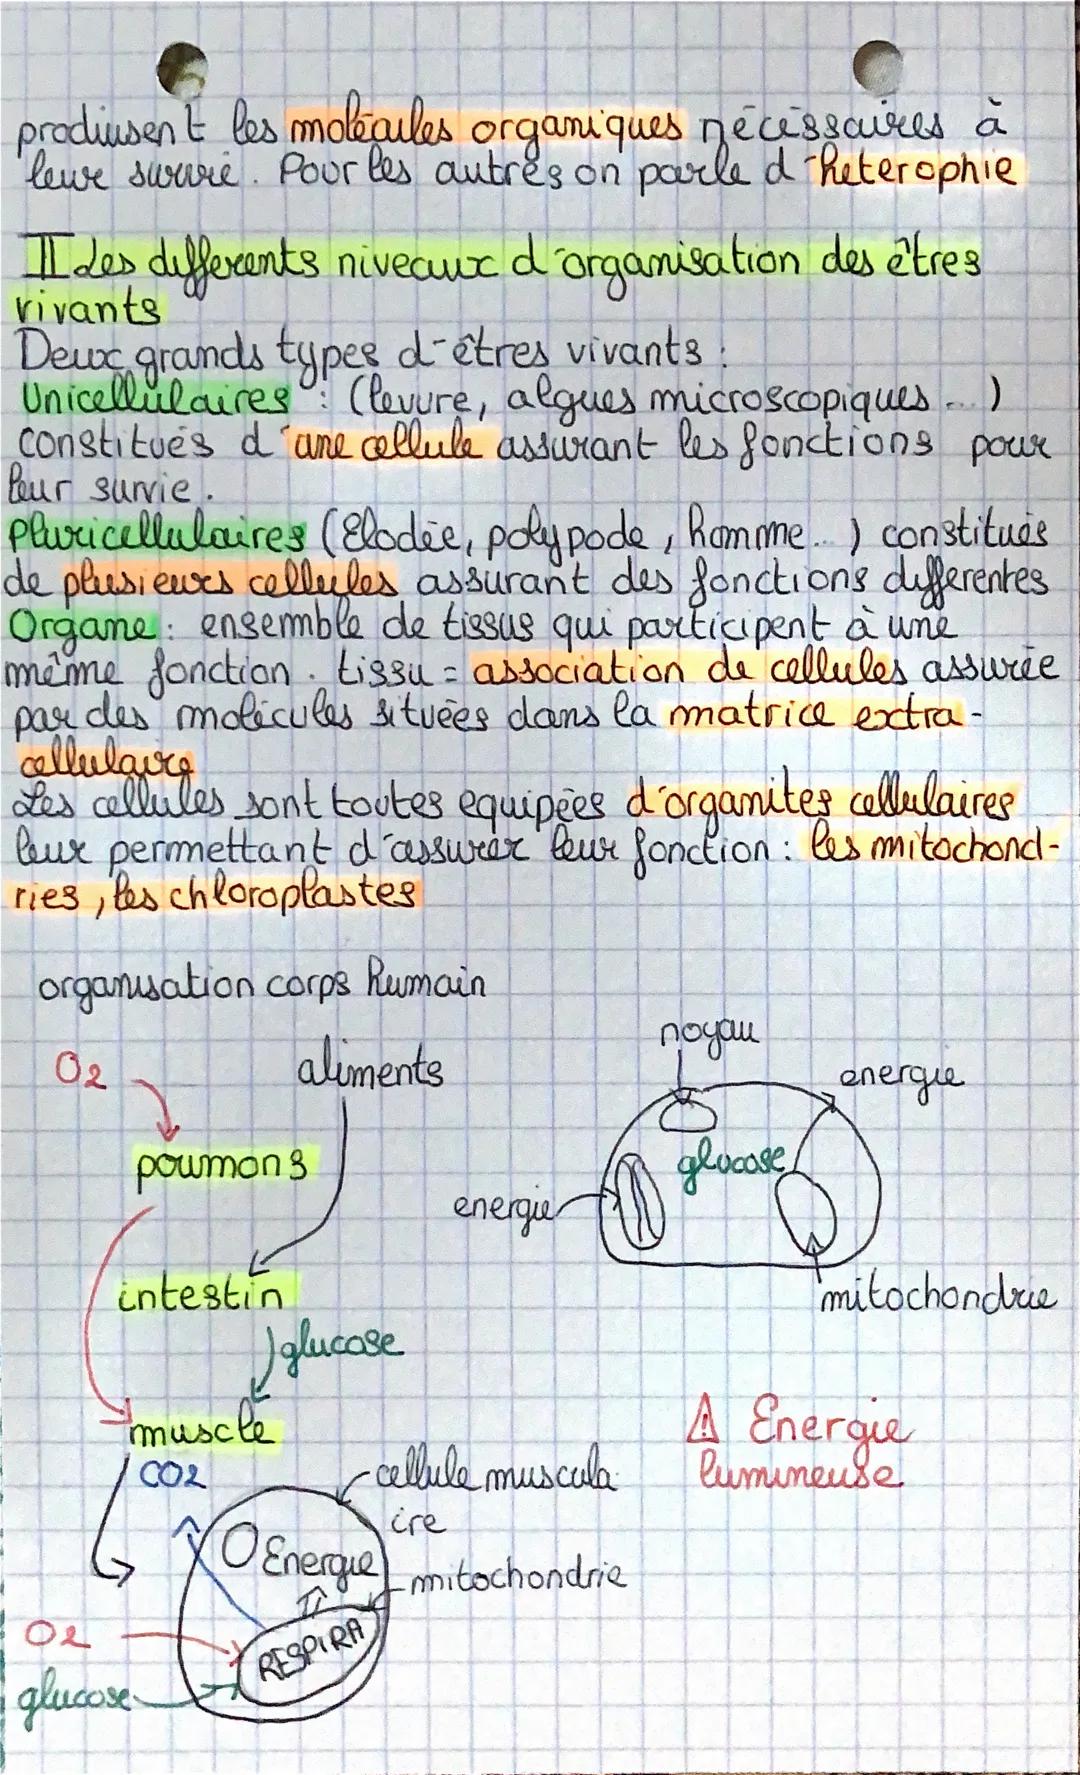 produisent les molécules organiques nécéssaires à
leur survie. Pour les autres on parle d'heterophie
II Les differents niveaux d'organisation des êtres
vivants
Deux grands types d'êtres vivants :
Unicellulaires : (levure, algues microscopiques...)
constitués d'une cellule assurant les fonctions pour
leur survie.
Pluricellulaires (Elodée, polypode, homme...) constitués
de plusieurs cellules assurant des fonctions differentes
Organe : ensemble de tissus qui participent à une
même fonction. tissu = association de cellules assurée
par des molécules situées dans la matrice extra-
cellulaire
Les cellules sont toutes equipées d'organites cellulaires
leur permettant d'assurer leur fonction : les mitochond-
ries, les chloroplastes
organisation corps humain
noyau
O2
aliments
energie
poumons
glucose
energie
intestin
mitochondrie
glucose
muscle
⚠ Energie
lumineuse
CO2
cellule muscula
ire
Energie
mitochondrie
O2
RESPIRA
glucose